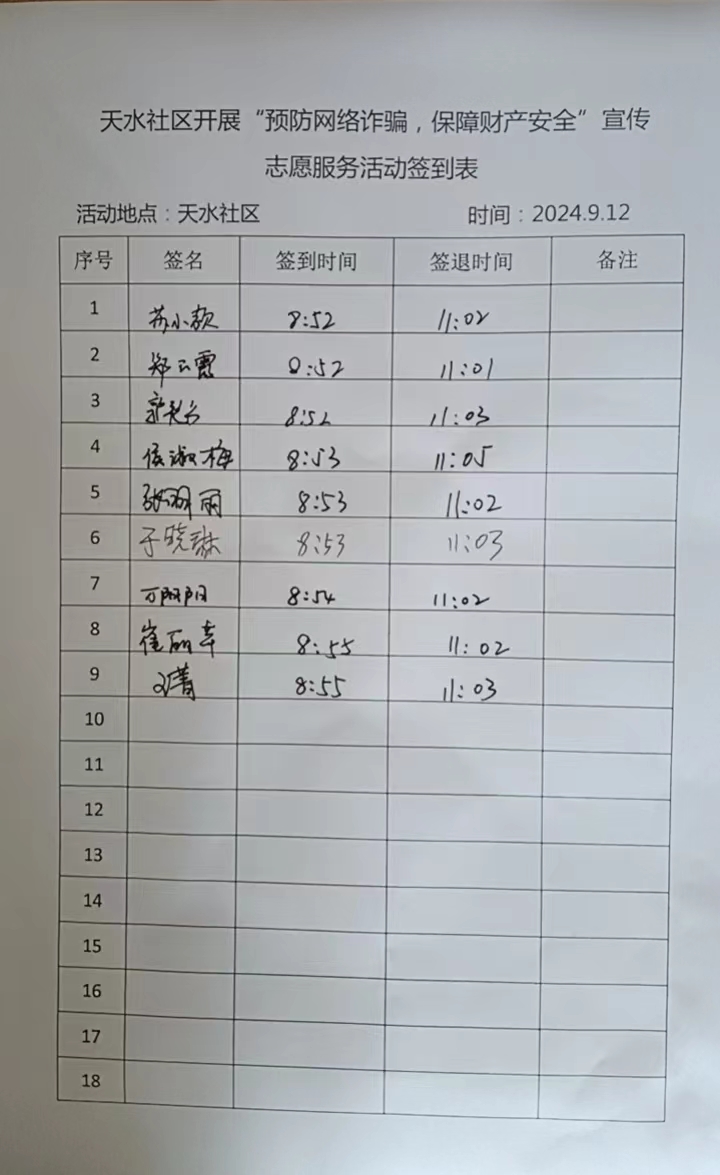 天水社区开展“预防网络诈骗，保障财产安全”宣传
志愿服务活动签到表
活动地点：天水社区 时间：2024.9.12
序号 签名 签到时间 签退时间 备注
1 苏小款 8:52 11:02
2 郑云霞 8:52 11:01
3 8:52 11:03
4 侯淑梅 8:53 11:05
5 丽 8:53 11:02
6 于晓琳 8:53 11:03
7 万阳阳 8:54 11:02
8 崔丽幸 8:55 11:02
9 菁 8:55 11:03
10
11
12
13
14
15
16
17
18